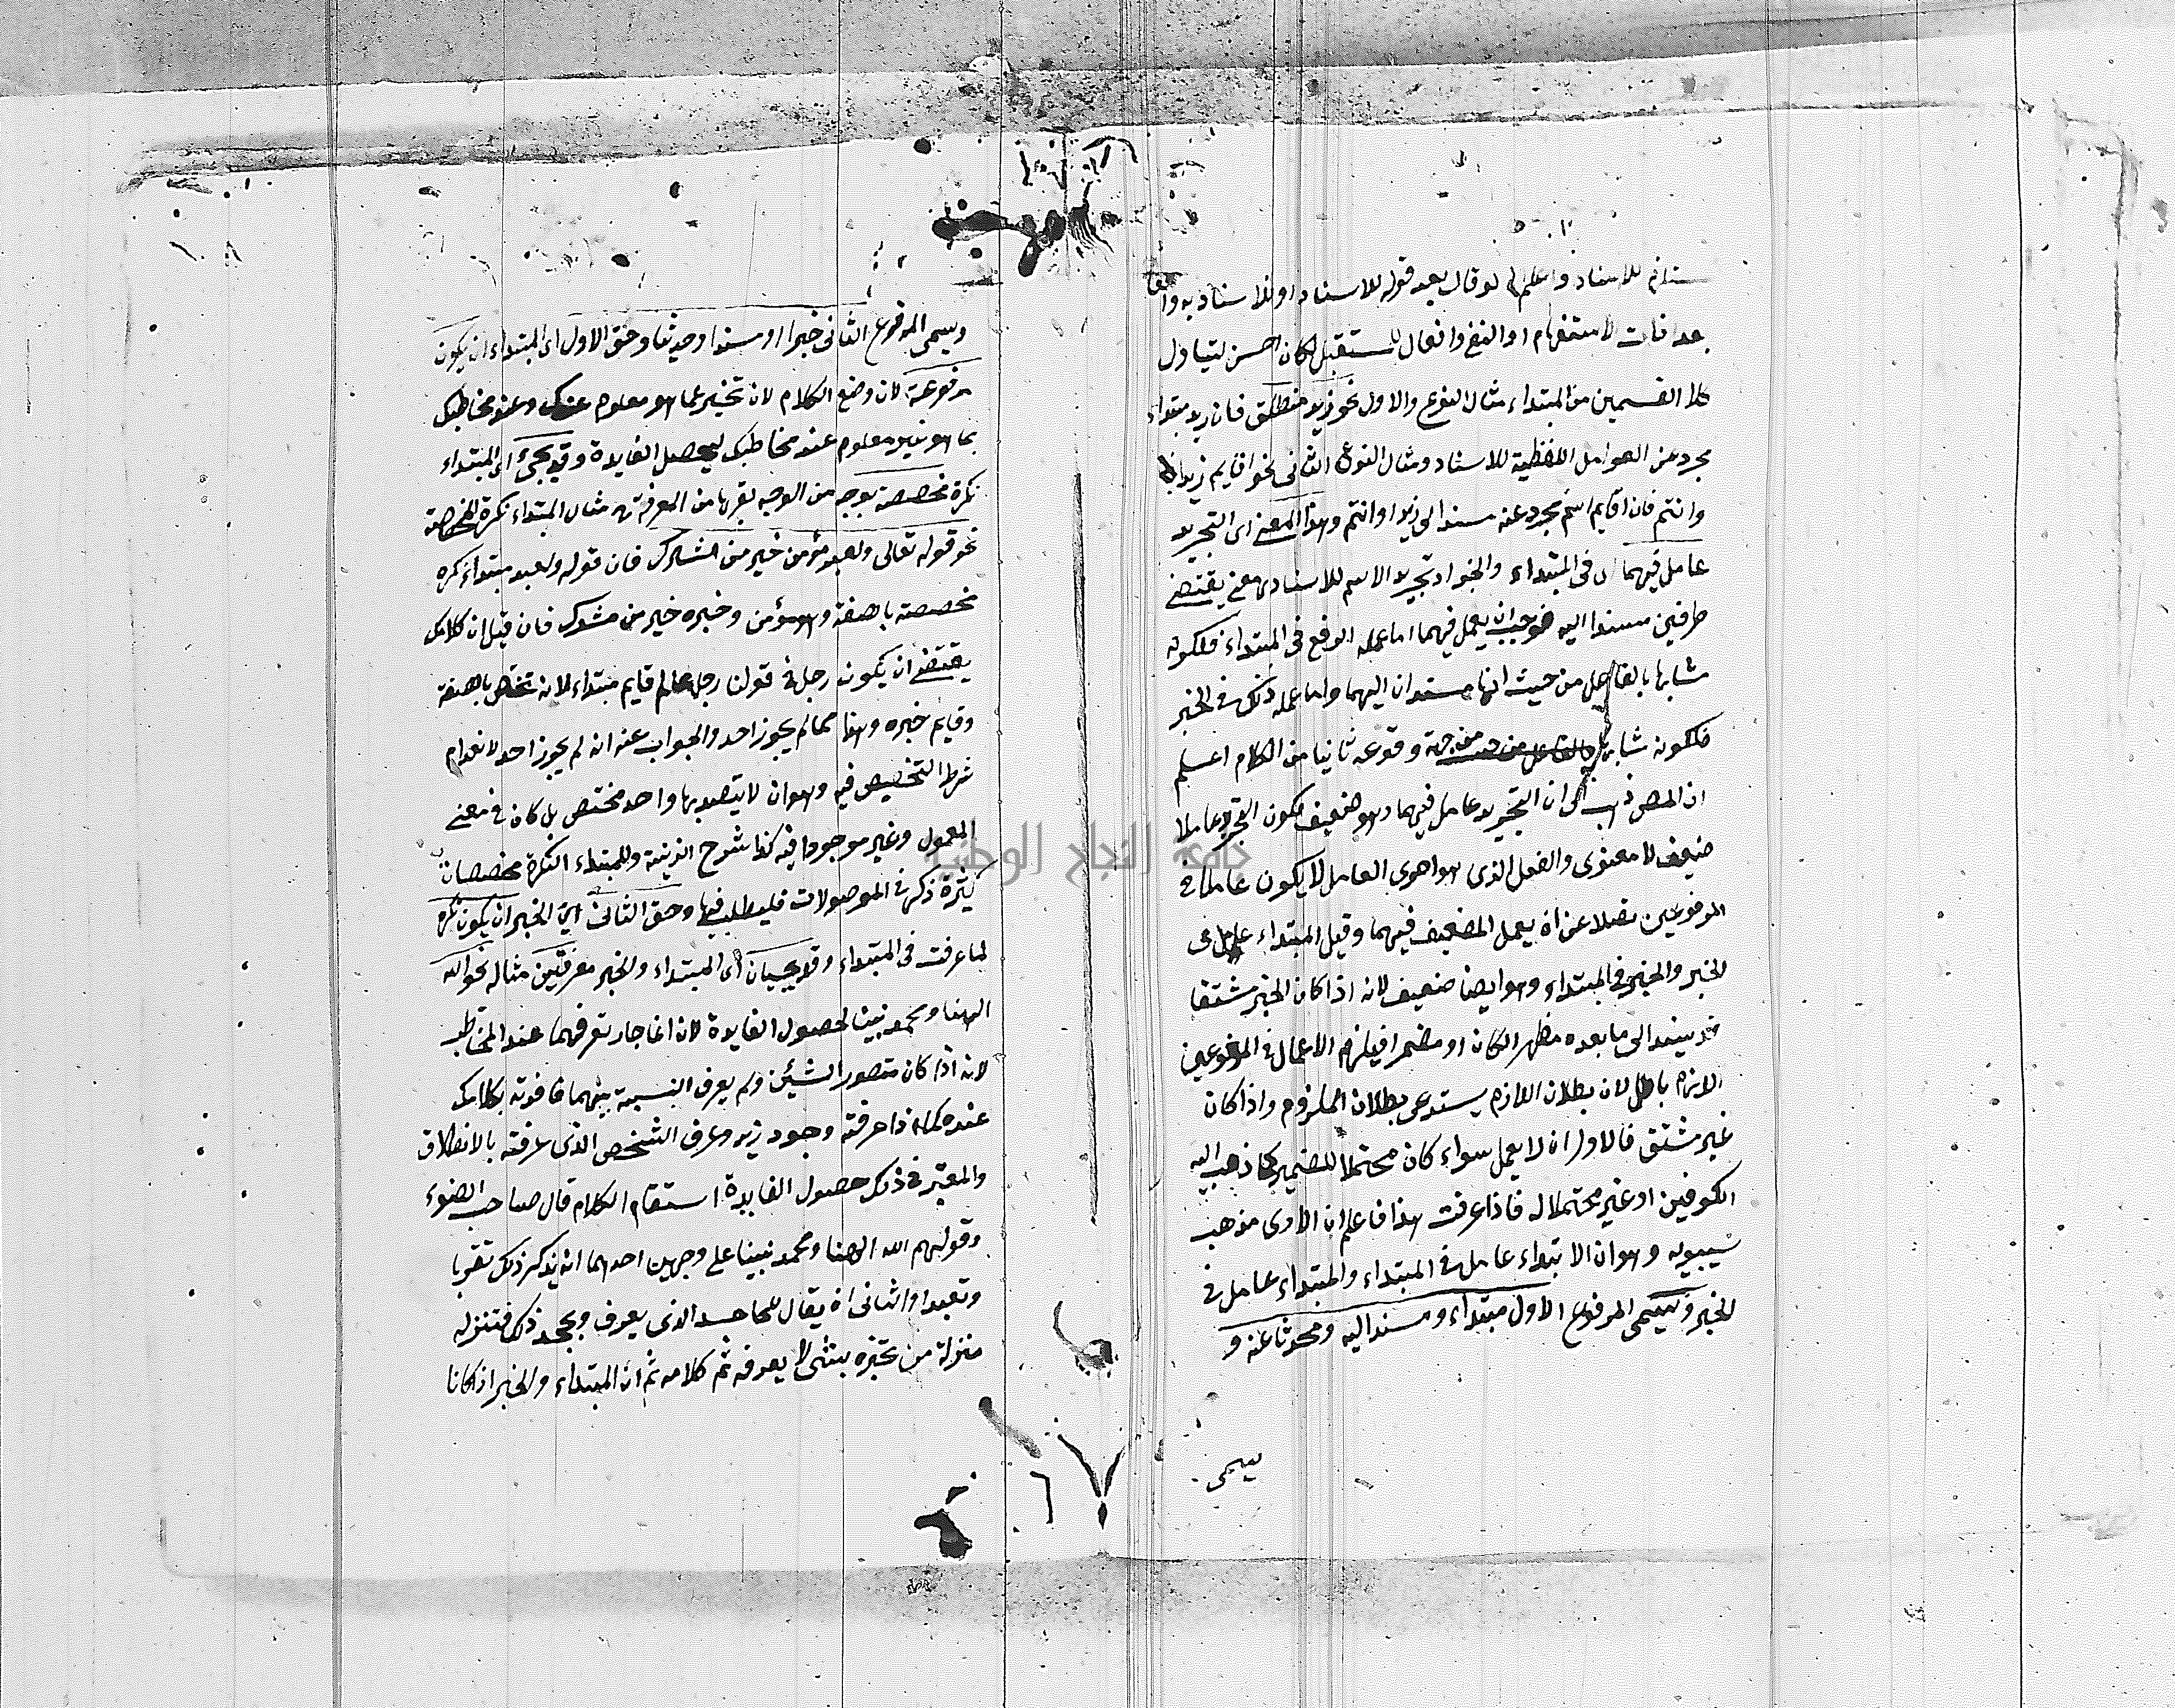 ستلزم للاسناد واعلم انه لو قال بعد قوله للاسناد او للاسناد به واقعا
بعد الاستفهام او النفي لكان احسن ليتناول
كلا القسمين من المبتداء مثال النوع والاول نحو زيد منطلق فان زيد مبتداء
مجرد عن العوامل اللفظية للاسناد ومثال النوع الثانى نحو اقايم زيد
وانتم فان اقايم اسم مجرد عنه مسند الى زيد او انتم وهذا المعنى اى التجريد
عامل فيهما اى فى المبتداء والخبر اذ تجريد الاسم للاسناد معنى يقتضى
طرفين مسندا اليه فوجب ان يعمل فيهما اما عمله الرفع فى المبتداء فلكونه
مشابها بالفاعل من حيث انها مسندان اليهما واما عمله ذلك فى الخبر
فلكونه مشابها من جهة وقوعه ثانيا من الكلام اعلم
ان المص ذهب الى ان التجريد عامل فيهما وهو ضعيف لكون التجرد عاملا
ضعيفا لا معنوى والفعل الذى هو اقوى العامل لا يكون عاملا فى
المرفوعين فضلا عن ان يعمل الضعيف فيهما وقيل المبتداء عامل فى
الخبر والخبر فى المبتداء وهو ايضا ضعيف لانه اذا كان الخبر مشتقا
قد يسند الى ما بعده مظهرا كان او مضمرا فيلزم الاعمال فى المرفوعين
اللازم باطل لان بطلان اللازم يستدعى بطلان الملزوم واذا كان
غير مشتق فالاولى ان لا يعمل سواء كان محتملا للضمير كما ذهب اليه
الكوفين او غير محتمل له فاذا عرفت هذا فاعلم ان الاولى مذهب
سيبويه وهو ان الابتداء عامل فى المبتداء والمبتداء عامل فى
الخبر ويسمى المرفوع الاول مبتداء ومسندا اليه ومحدثا عنه و
يسمى
ويسمى المرفوع الثانى خبرا او مسندا وحديثا وحق الاول اى المبتداء ان يكون
معرفة لان وضع الكلام لان تخبر عما هو معلوم عندك وعند مخاطبك
بما هو غير معلوم عند مخاطبك ليحصل الفايدة وقد يجئ اى المبتداء
نكرة مخصصة بوجه من الوجوه بقربها من المعرفة مثال المبتداء نكرة المخصصة
نحو قوله تعالى ولعبد مؤمن خير من مشرك فان قوله ولعبد مبتداء نكره
مخصصة بالصفة وهو مؤمن وخبره خير من مشرك فان قيل ان كلامك
يقتضى ان يكون رجل فى قولنا رجل عالم قايم مبتداء لانه تخصص بالصفة
وقايم خبره وهذا مما لم يجوز احد والجواب عنه انه لم يجوز احد لانعدام
شرط التخصيص فيه وهو ان لا يقصد بها واحد مختص بل كان فى معنى
المعمول وغير موجود فيه كذا شرح الزينية وللمبتداء النكرة مخصصات
كثيرة ذكرها فى الموصولات فليطلب فيها وحق الثانى اى الخبر ان يكون نكرة
لما عرفت فى المبتداء وقد يجيئان اى المبتداء والخبر معرفتين مثاله نحو الله
الهنا ومحمد نبينا لحصول الفايدة لان انما جاز تعرفهما عند المخاطب
لانه اذا كان متصور الشيئين ولم يعرف النسبة بينهما فافدته بكلامك
عنده كما اذا عرفته وجود زيد وعرف الشخص الذى عرفته بالانطلاق
والمعتبر فى ذلك حصول الفايدة استقام الكلام قال صاحب الضوء
وقولهم الله الهنا ومحمد نبينا على وجهين احدهما انه يذكر ذلك تقربا
وتعبدا والثانى ان يقال للجاحد الذى يعرف ويجحد ذلك فتنزله
منزلة من تخبره بشئ لا يعرفه تم كلامه ثم ان المبتداء والخبر اذا كانا
جامعة النجاح الوطنية